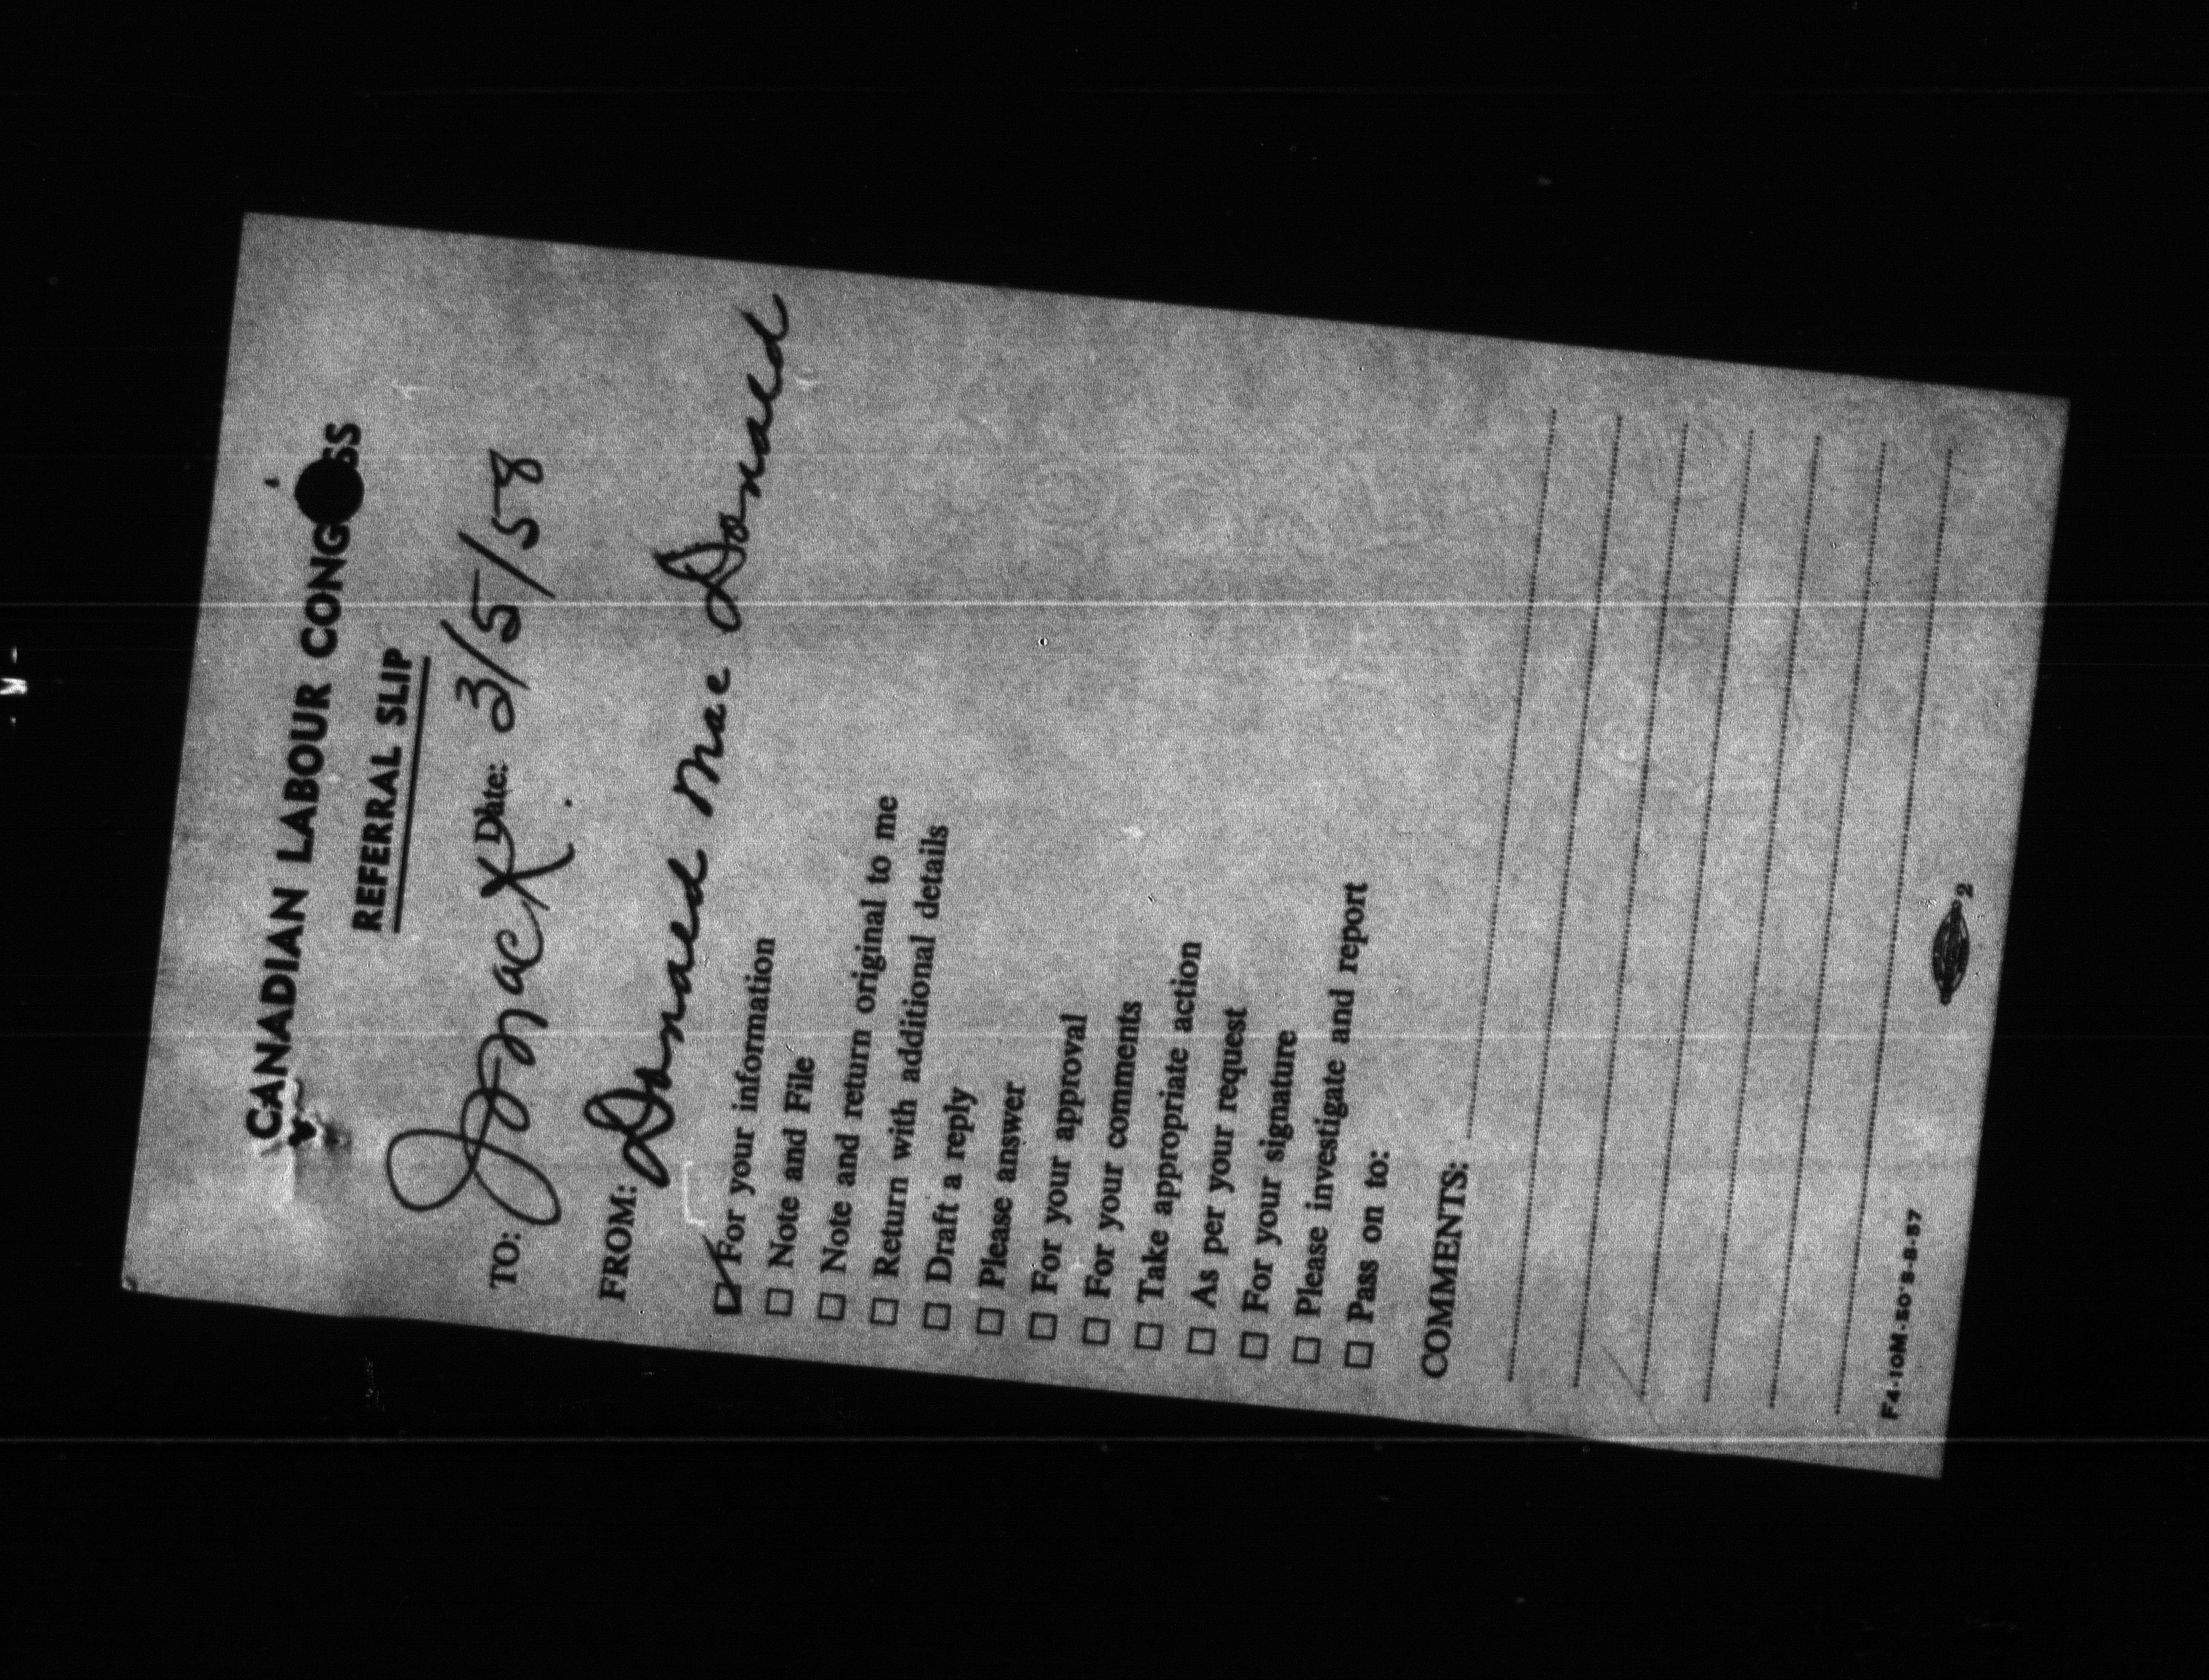 CANADIAN LABOUR CONG SS
REFERRAL SLIP
TO: Date: 3/5/58
FROM: Donald MacDonald
☑ For your information
☐ Note and File
☐ Note and return original to me
☐ Return with additional details
☐ Draft a reply
☐ Please answer
☐ For your approval
☐ For your comments
☐ Take appropriate action
☐ As per your request
☐ For your signature
☐ Please investigate and report
☐ Pass on to:
COMMENTS:
F4-10M-50's-8-57
2